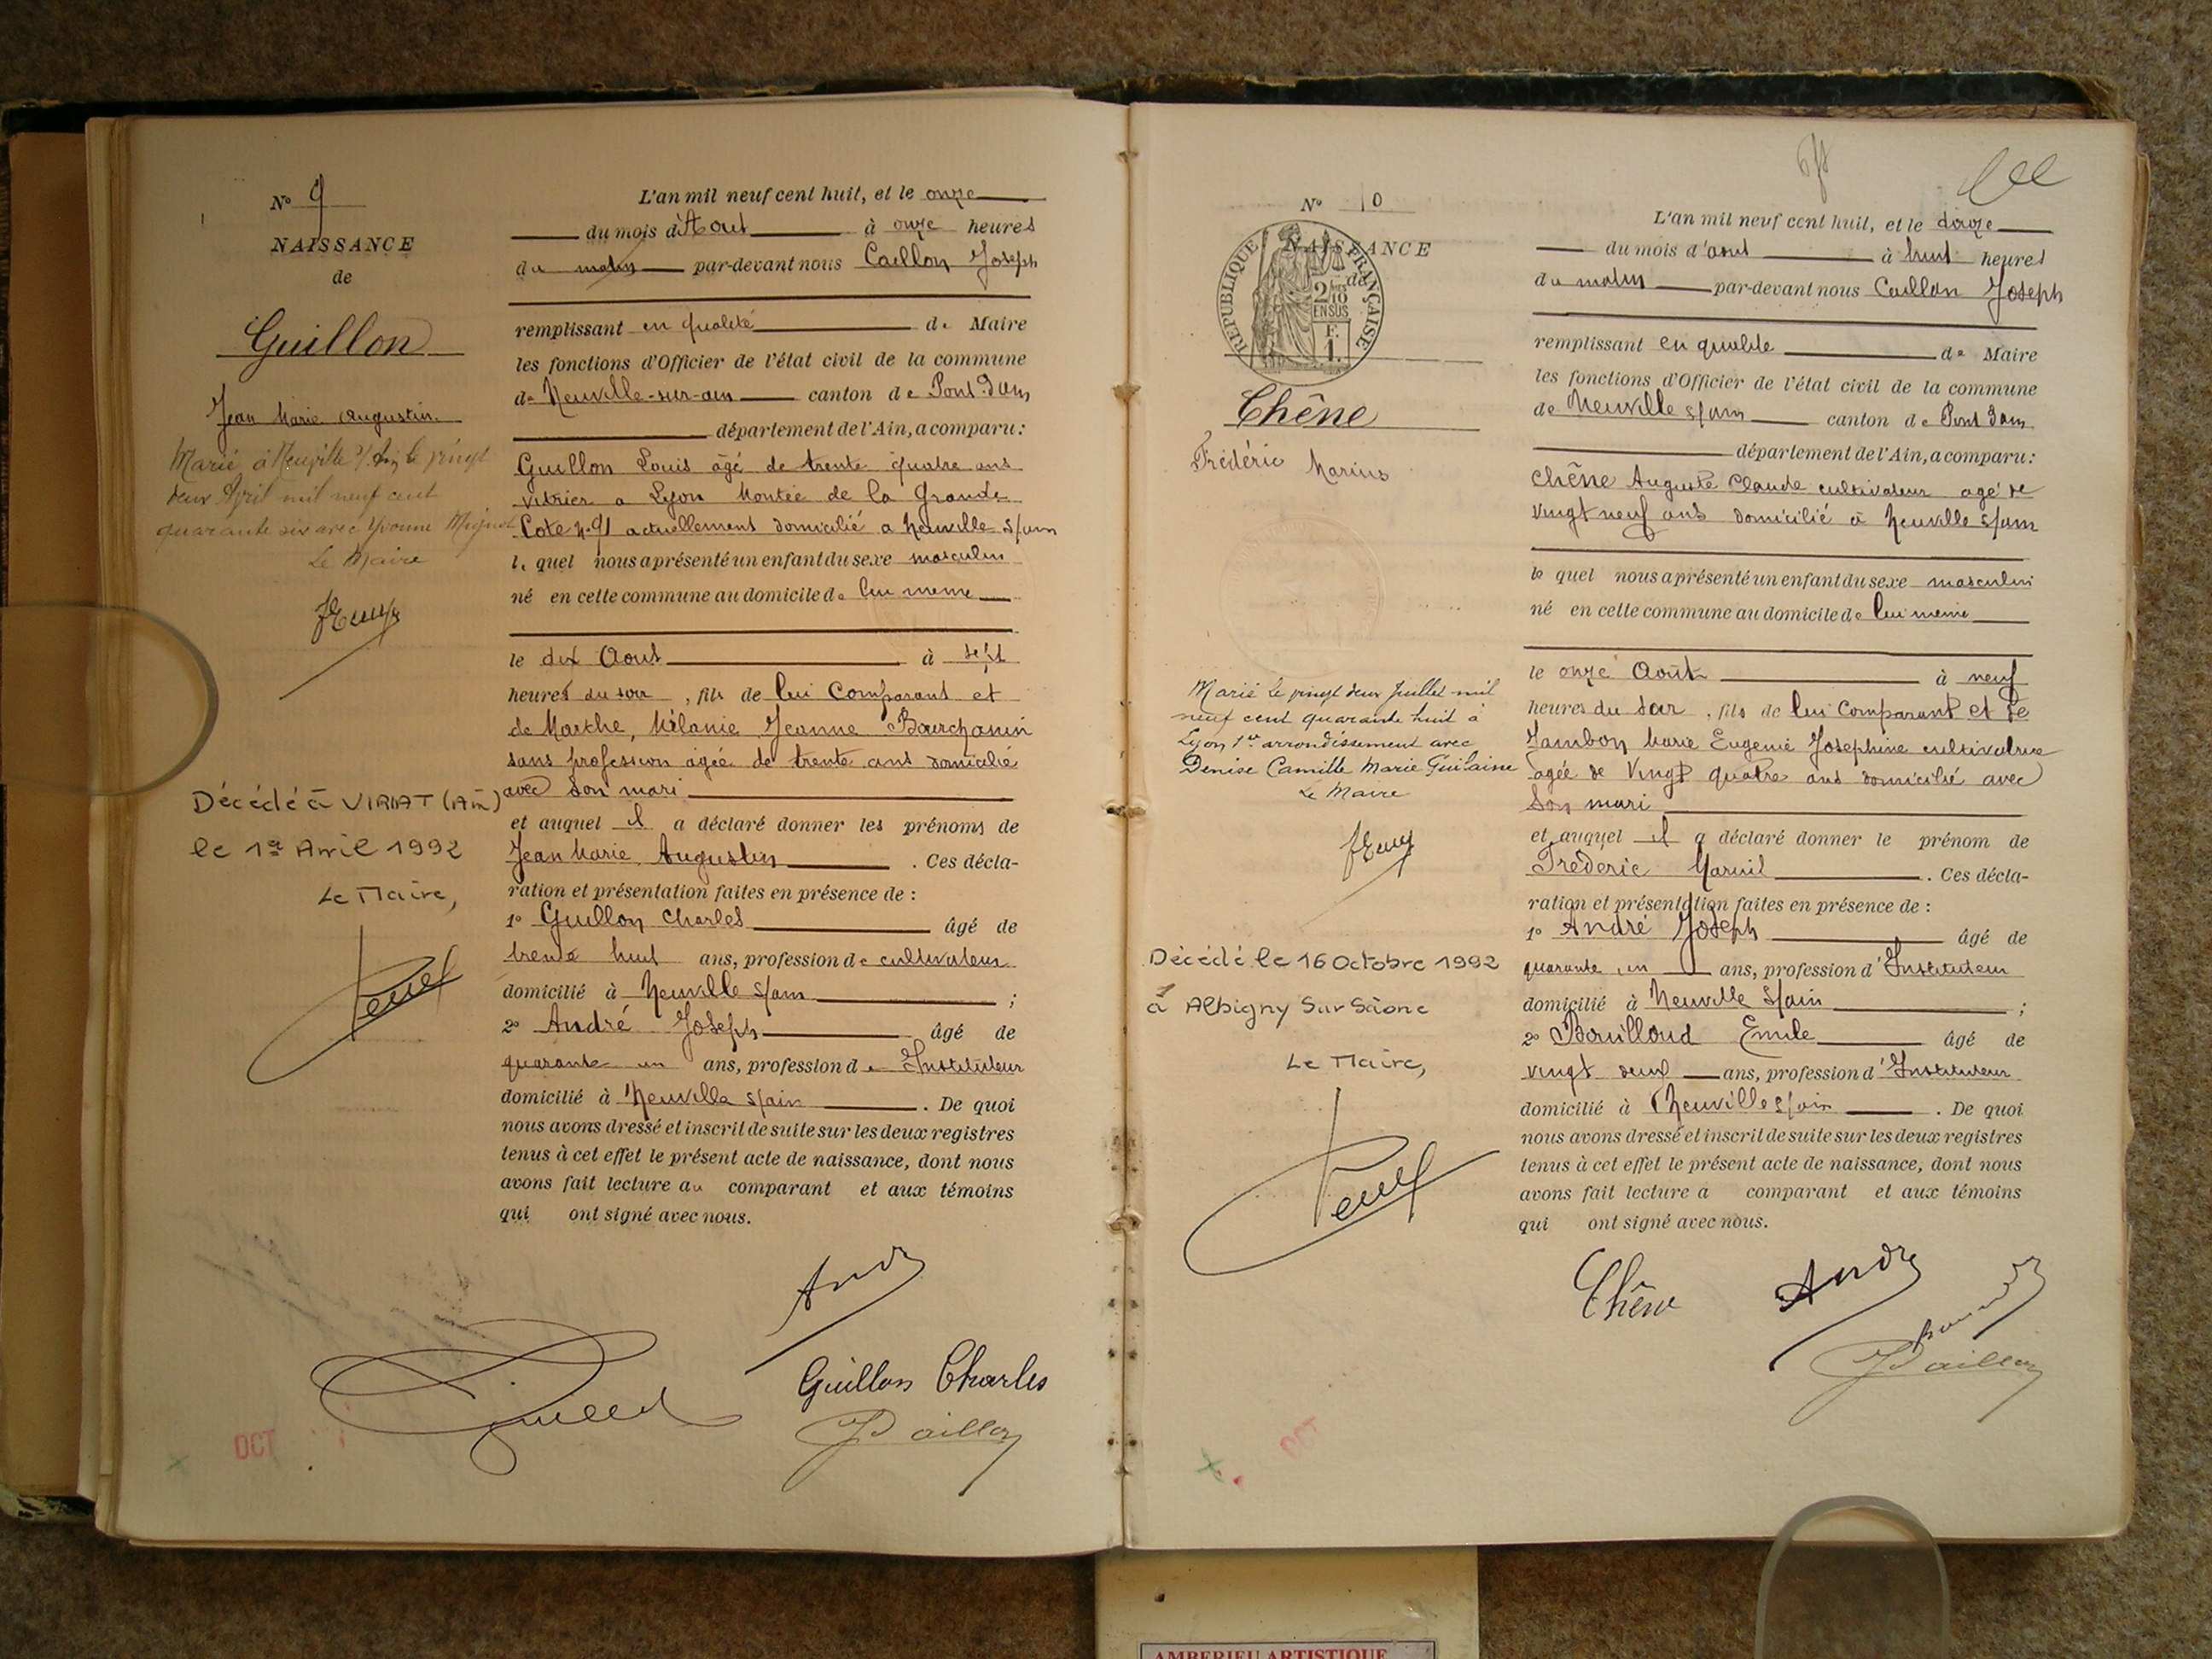 N° 9
NAISSANCE
de
Guillon
Jean Marie Augustin.
Marié à Neuville s/ Ain le vingt
deux Avril mil neuf cent
quarante six avec Yvonne Mignot
Le Maire
Décédé à VIRIAT (Ain)
le 1er Avril 1992
Le Maire,
L'an mil neuf cent huit, et le onze
du mois d'Aout à onze heures
du matin par-devant nous Caillon Joseph
remplissant en qualité de Maire
les fonctions d'Officier de l'état civil de la commune
de Neuville-sur-ain canton de Pont d'ain
département de l'Ain, a comparu:
Guillon Louis âgé de trente quatre ans
vitrier a Lyon Montée de la Grande
Cote n° 91 actuellement domicilié a Neuville s/ain
le quel nous a présenté un enfant du sexe masculin
né en cette commune au domicile de lui meme
le dix Aout à sept
heures du soir, fils de lui Comparant et
de Marthe, Mélanie Jeanne
sans profession agée de trente ans domicilié
avec son mari
et auquel il a déclaré donner les prénoms de
Jean Marie Augustin. Ces décla-
ration et présentation faites en présence de :
1° Guillon Charles âgé de
trente huit ans, profession de cultivateur
domicilié à Neuville s/ain ;
2° André Joseph âgé de
quarante un ans, profession de Instituteur
domicilié à Neuville s/ain. De quoi
nous avons dressé et inscrit de suite sur les deux registres
tenus à cet effet le présent acte de naissance, dont nous
avons fait lecture au comparant et aux témoins
qui ont signé avec nous.
André
Guillon Charles
J Caillon
OCT
N° 10
NAISSANCE
de
RÉPUBLIQUE FRANÇAISE
2/10
EN SUS
F.
1.
Chêne
Frédéric Marius
Marié le vingt deux Juillet mil
neuf cent quarante huit à
Lyon 1er arrondissement avec
Denise Camille Marie Guilaine
Le Maire
Décédé le 16 Octobre 1992
à Albigny Sur Saône
Le Maire,
L'an mil neuf cent huit, et le douze
du mois d'aout à huit heures
du matin par-devant nous Caillon Joseph
remplissant en qualite de Maire
les fonctions d'Officier de l'état civil de la commune
de Neuville s/ain canton de Pont d'ain
département de l'Ain, a comparu:
Chêne Auguste Claude cultivateur agé de
vingt neuf ans domicilié à Neuville s/ain
le quel nous a présenté un enfant du sexe masculin
né en cette commune au domicile de lui meme
le onze Août à neuf
heures du soir, fils de lui Comparant et de
Jambon Marie Eugenie Josephine cultivatrice
agée de vingt quatre ans domicilié avec
son mari
et auquel il a déclaré donner le prénom de
Frederic Marius. Ces décla-
ration et présentation faites en présence de :
1° André Joseph âgé de
quarante un ans, profession d'Instituteur
domicilié à Neuville s/ain ;
2° Bouilloud Emile âgé de
vingt ans, profession d'Instituteur
domicilié à Neuville s/ain. De quoi
nous avons dressé et inscrit de suite sur les deux registres
tenus à cet effet le présent acte de naissance, dont nous
avons fait lecture a comparant et aux témoins
qui ont signé avec nous.
Chêne
André
J Caillon
OCT
AMBERIEU ARTISTIQUE